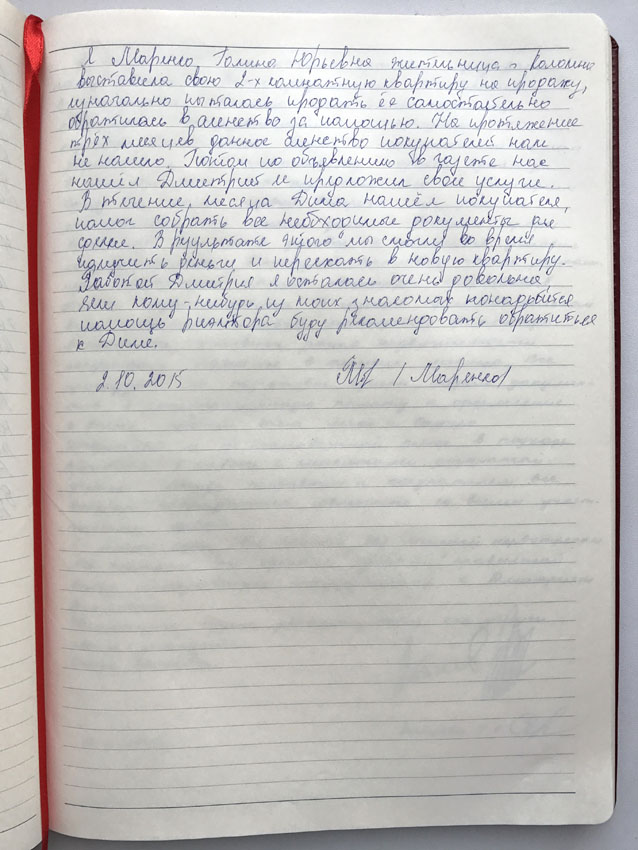 Я Маренко Галина Юрьевна жительница г. Коломна
выставила свою 2-х комнатную квартиру на продажу,
изначально пыталась продать её самостоятельно
обратилась в агенство за помощью. На протяжение
трёх месяцев данное агенство покупателей нам
не нашло. Потом по объявлению в газете нас
нашёл Дмитрий и предложил свои услуги.
В течение месяца Дима нашёл покупателя,
помог собрать все необходимые документы для
сделке. В результате этого мы смогли во время
получить деньги и переехать в новую квартиру.
Работой Дмитрия я осталась очень довольна,
если кому-нибудь из моих знакомых понадобится
помощь риэлтора буду рекомендовать обратиться
к Диме.
2.10.2015 / Маренко /